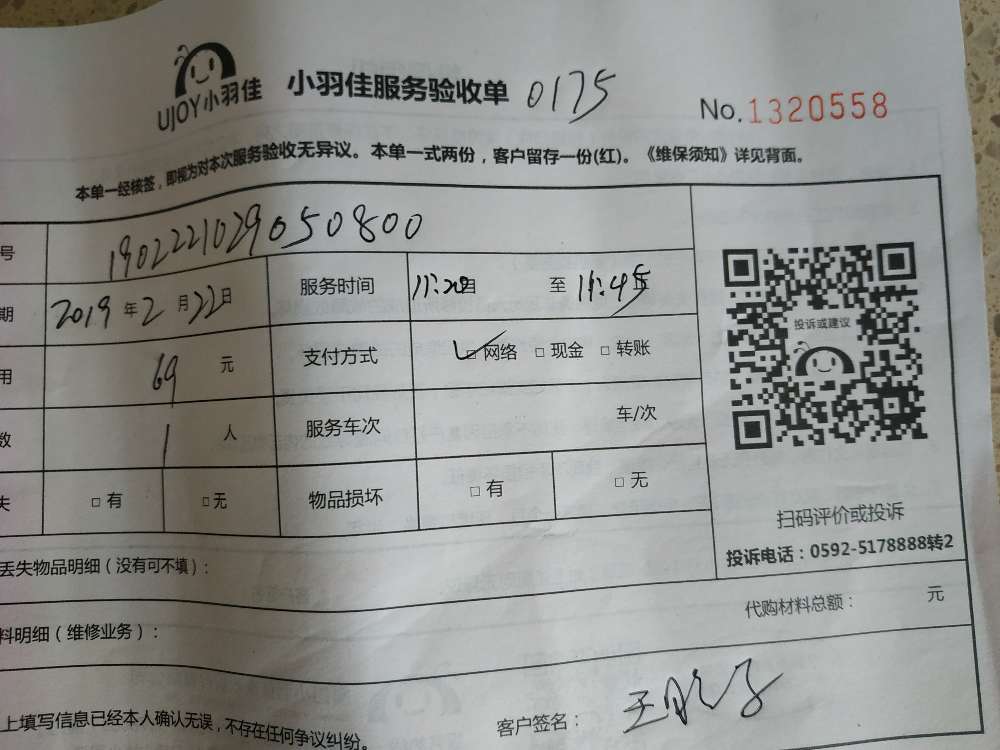 UJOY小羽佳 小羽佳服务验收单 0175 No.1320558
本单一经核签，即视为对本次服务验收无异议。本单一式两份，客户留存一份(红)。《维保须知》详见背面。
号 1902221029050800
期 2019年2月22日 服务时间 11:20 至 11:45
用 69 元 支付方式 □网络 □现金 □转账
数 1 人 服务车次 车/次
失 □有 □无 物品损坏 □有 □无
投诉或建议
扫码评价或投诉
投诉电话：0592-5178888转2
丢失物品明细（没有可不填）：
料明细（维修业务）： 代购材料总额： 元
上填写信息已经本人确认无误，不存在任何争议纠纷。 客户签名：